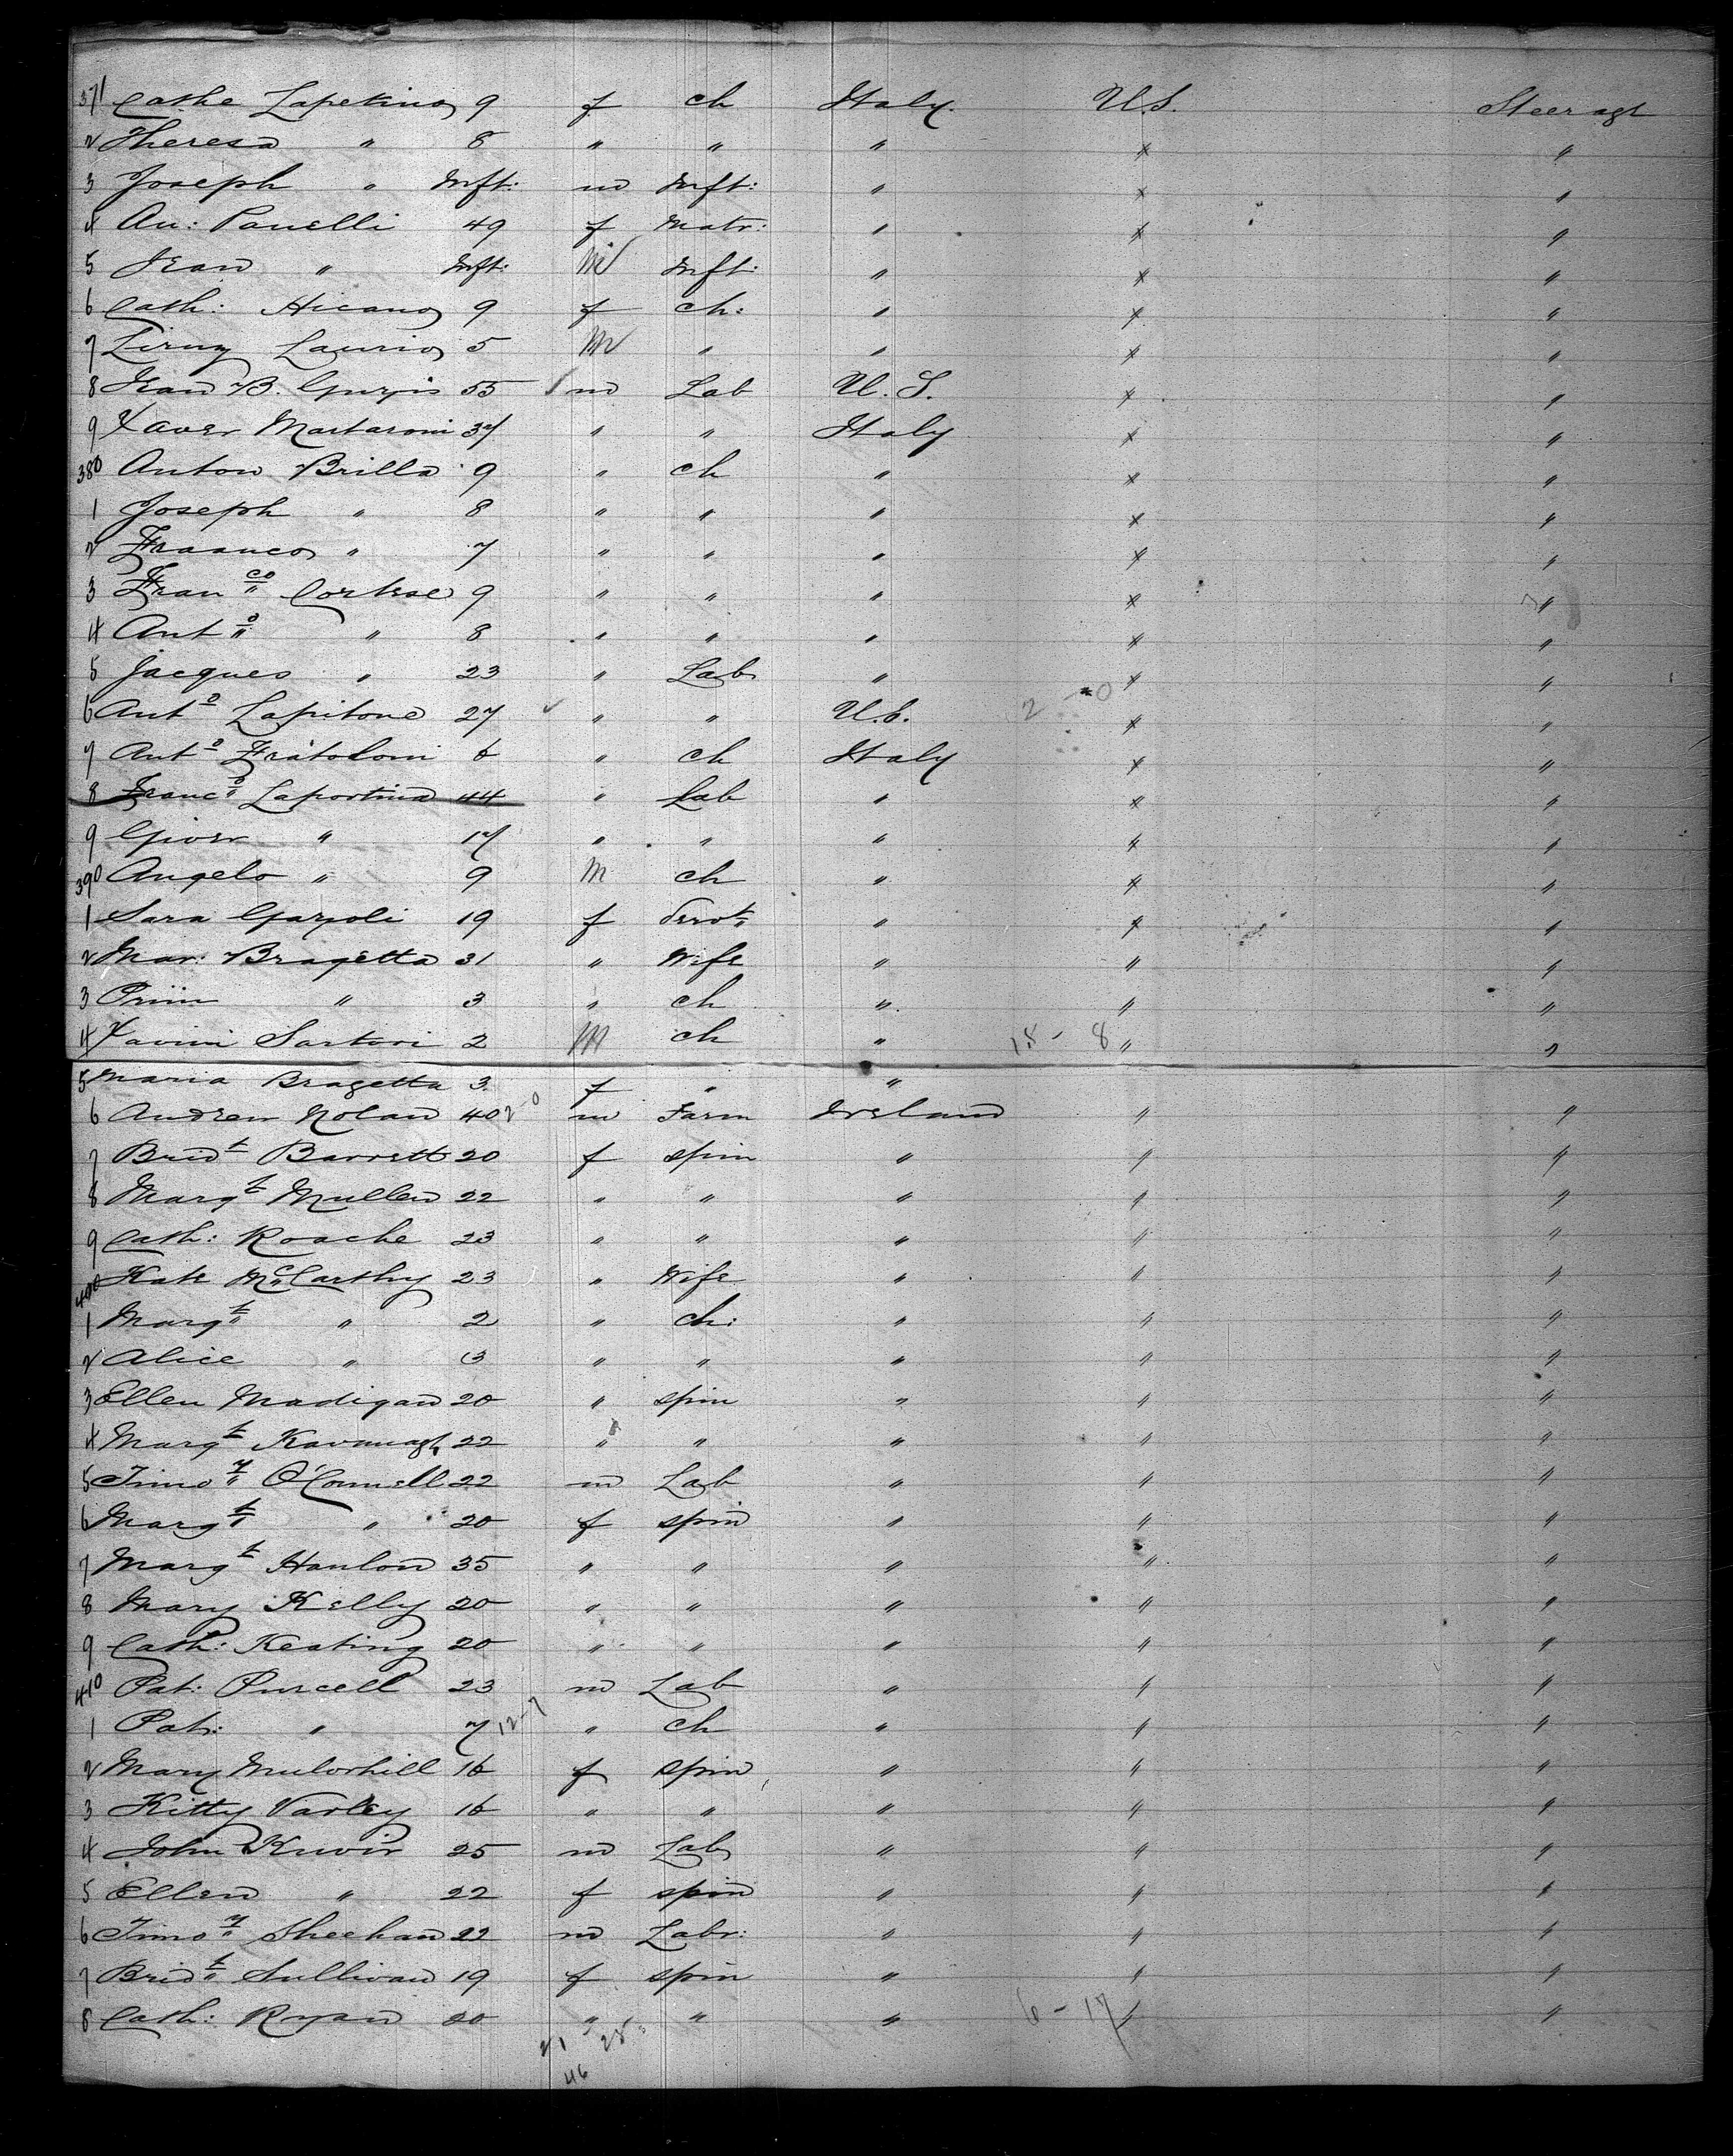 371 Cathe Lapetino 9 f ch Italy. U.S. Steerage
2 Theresa " 8 " " " " "
3 Joseph " Inft: m Inft: " " "
4 An: Panelli 49 f Matr: " " "
5 Jean " Inft: M Inft: " " "
6 Cath: Hicano 9 f ch: " " "
7 Laurio 5 M " " " "
8 Jean B. 55 m Lab U.S. " "
9 Xaver Martaroni 37 " " Italy " "
380 Anton Brilla 9 " ch " " "
1 Joseph " 8 " " " " "
2 Franco " 7 " " " " "
3 Franco Cortese 9 " " " " "
4 Anto " 8 " " " " "
5 Jacques " 23 " Lab " " "
6 Anto Lapitone 27 " " U.S. 2 - 0 " "
7 Anto Fratoloni 6 " ch Italy " "
8 Franco Laportina 44 " Lab " " "
9 Giovr " 17 " " " " "
390 Angelo " 9 M ch " " "
1 Sara Garzoli 19 f Servt " " "
2 Mar: Bragetta 31 " Wife " " "
3 Priin " 3 " ch " " "
4 Xavini Sartori 2 M ch " 18 - 8 " "
5 Maria Bragetta 3 f " "
6 Andrew Nolan 40 2-0 m Farm Ireland " "
7 Bridt Barrett 20 f spin " " "
8 Margt Mullen 22 " " " " "
9 Cath: Roache 23 " " " " "
400 Kate McCarthy 23 " Wife " " "
1 Margt " 2 " ch: " " "
2 Alice " 3 " " " " "
3 Ellen Madigan 20 " spin " " "
4 Margt Kavanagh 22 " " " " "
5 Timoy O'Connell 22 m Lab " " "
6 Margt " 20 f spin " " "
7 Margt Hanlon 35 " " " " "
8 Mary Kelly 20 " " " " "
9 Cath: Keating 20 " " " " "
410 Pat: Purcell 23 m Lab " " "
1 Pat: " 7 12-7 " ch " " "
2 Mary Mulorhill 16 f spin " " "
3 Kitty Varley 16 " " " " "
4 John Kirwir 25 m Lab " " "
5 Ellen " 22 f spin " " "
6 Timoy Sheehan 22 m Labr: " " "
7 Bridt Sullivan 19 f spin " " "
8 Cath: Ryan 20 " " " 6 - 17 " "
21 - 25
46